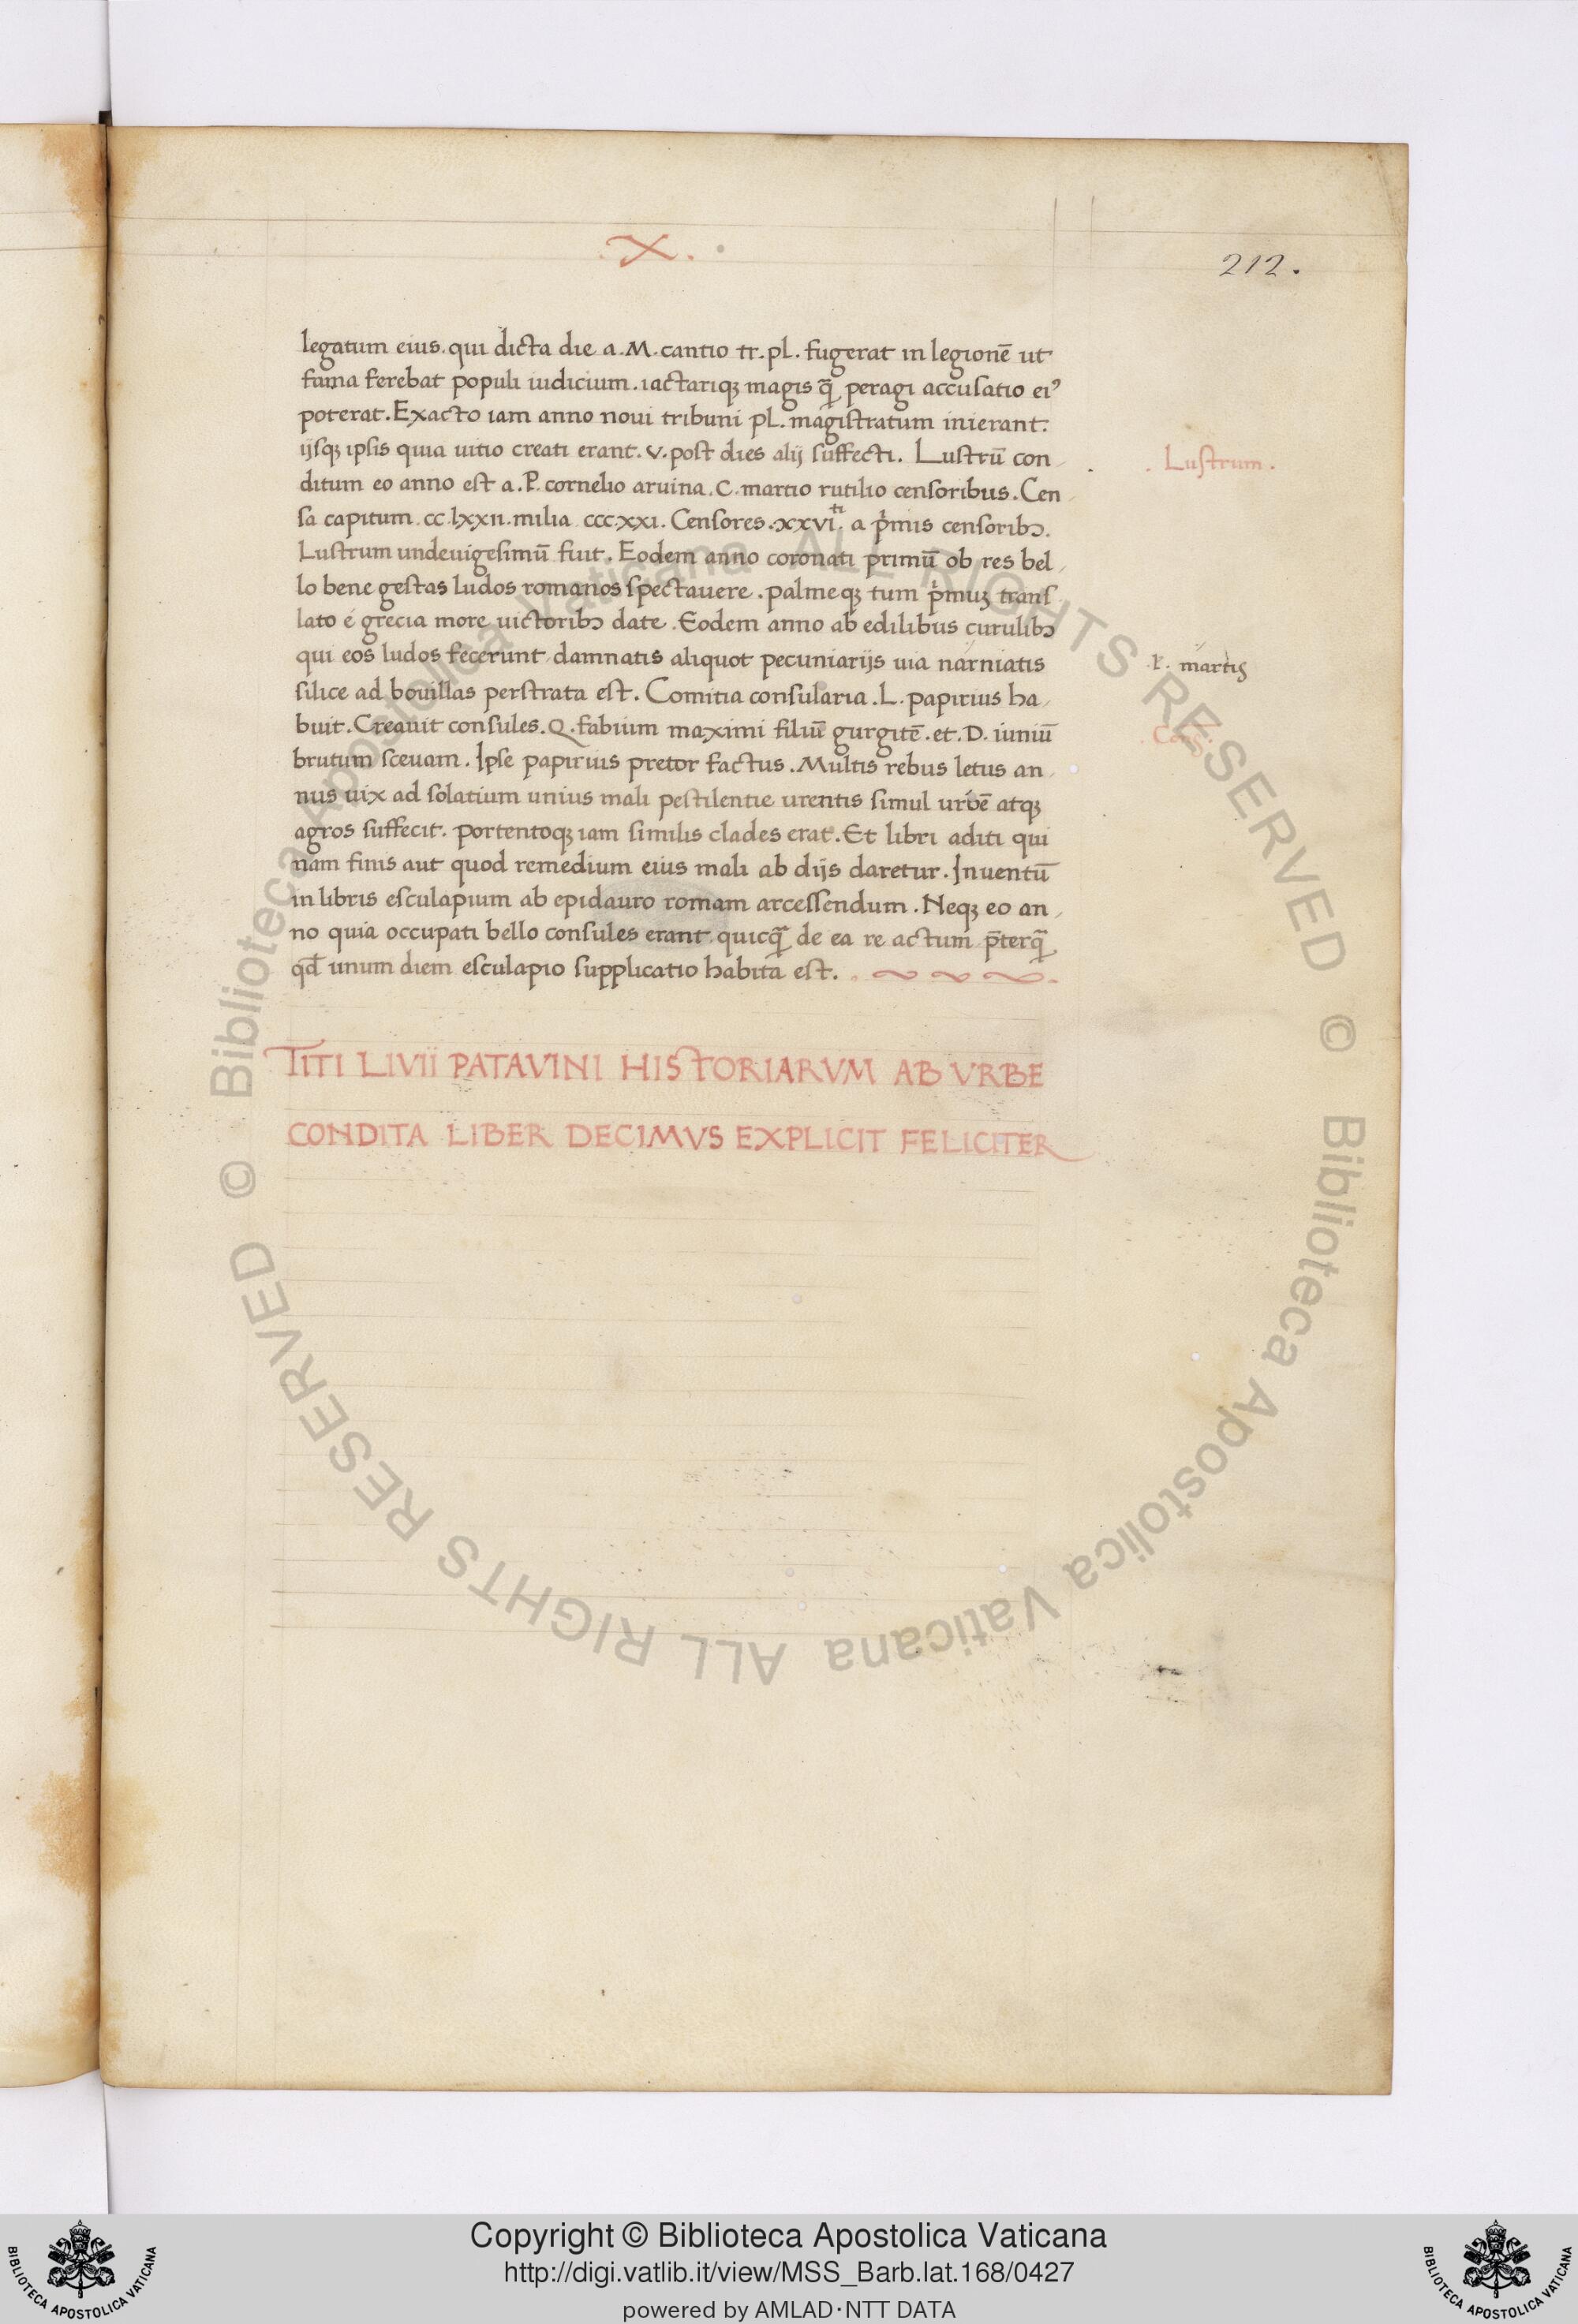 .X.
212.
legatum eius. qui dicta die a. M. cantio tr. pl. fugerat in legionē ut
fama ferebat populi iudicium. iactariqꝫ magis qꝫ̄ peragi accusatio eiꝰ
poterat. Exacto iam anno noui tribuni pl. magistratum inierant.
ijsqꝫ ipsis quia uitio creati erant. v. post dies alij suffecti. Lustrū con
Lustrum.
ditum eo anno est a. P. cornelio aruina. C. martio rutilio censoribus. Cen
sa capitum. cc lxxii. milia ccc.xxi. Censores. xxvi.ti a pͥmis censoribꝫ.
Lustrum undeuigesimū fuit. Eodem anno coronati primū ob res bel
lo bene gestas ludos romanos spectauere. palmeqꝫ tum pͥmuꝫ trans
lato é grecia more uictoribꝫ date. Eodem anno ab edilibus curulibꝫ
qui eos ludos fecerunt damnatis aliquot pecuniarijs uia narniatis
martis
silice ad bouillas perstrata est. Comitia consularia. L. papirius ha
buit. Creauit consules. Q. fabium maximi filiū gurgitē. et. D. iuniū
brutum sceuam. Ipse papirius pretor factus. Multis rebus letus an
nus uix ad solatium unius mali pestilentie urentis simul urbē atqꝫ
agros suffecit. portentoqꝫ iam similis clades erat. Et libri aditi qui
nam finis aut quod remedium eius mali ab dijs daretur. Inuentū
in libris esculapium ab epidauro romam arcessendum. Neqꝫ eo an
no quia occupati bello consules erant quicqꝫ̄ de ea re actum p̄terqꝫ̄
qđ unum diem esculapio supplicatio habita est.
TITI LIVII PATAVINI HISTORIARVM AB VRBE
CONDITA LIBER DECIMVS EXPLICIT FELICITER
© Biblioteca Apostolica Vaticana ALL RIGHTS RESERVED
© Biblioteca Apostolica Vaticana ALL RIGHTS RESERVED
Copyright © Biblioteca Apostolica Vaticana
http://digi.vatlib.it/view/MSS_Barb.lat.168/0427
powered by AMLAD·NTT DATA
BIBLIOTECA APOSTOLICA VATICANA
BIBLIOTECA APOSTOLICA VATICANA